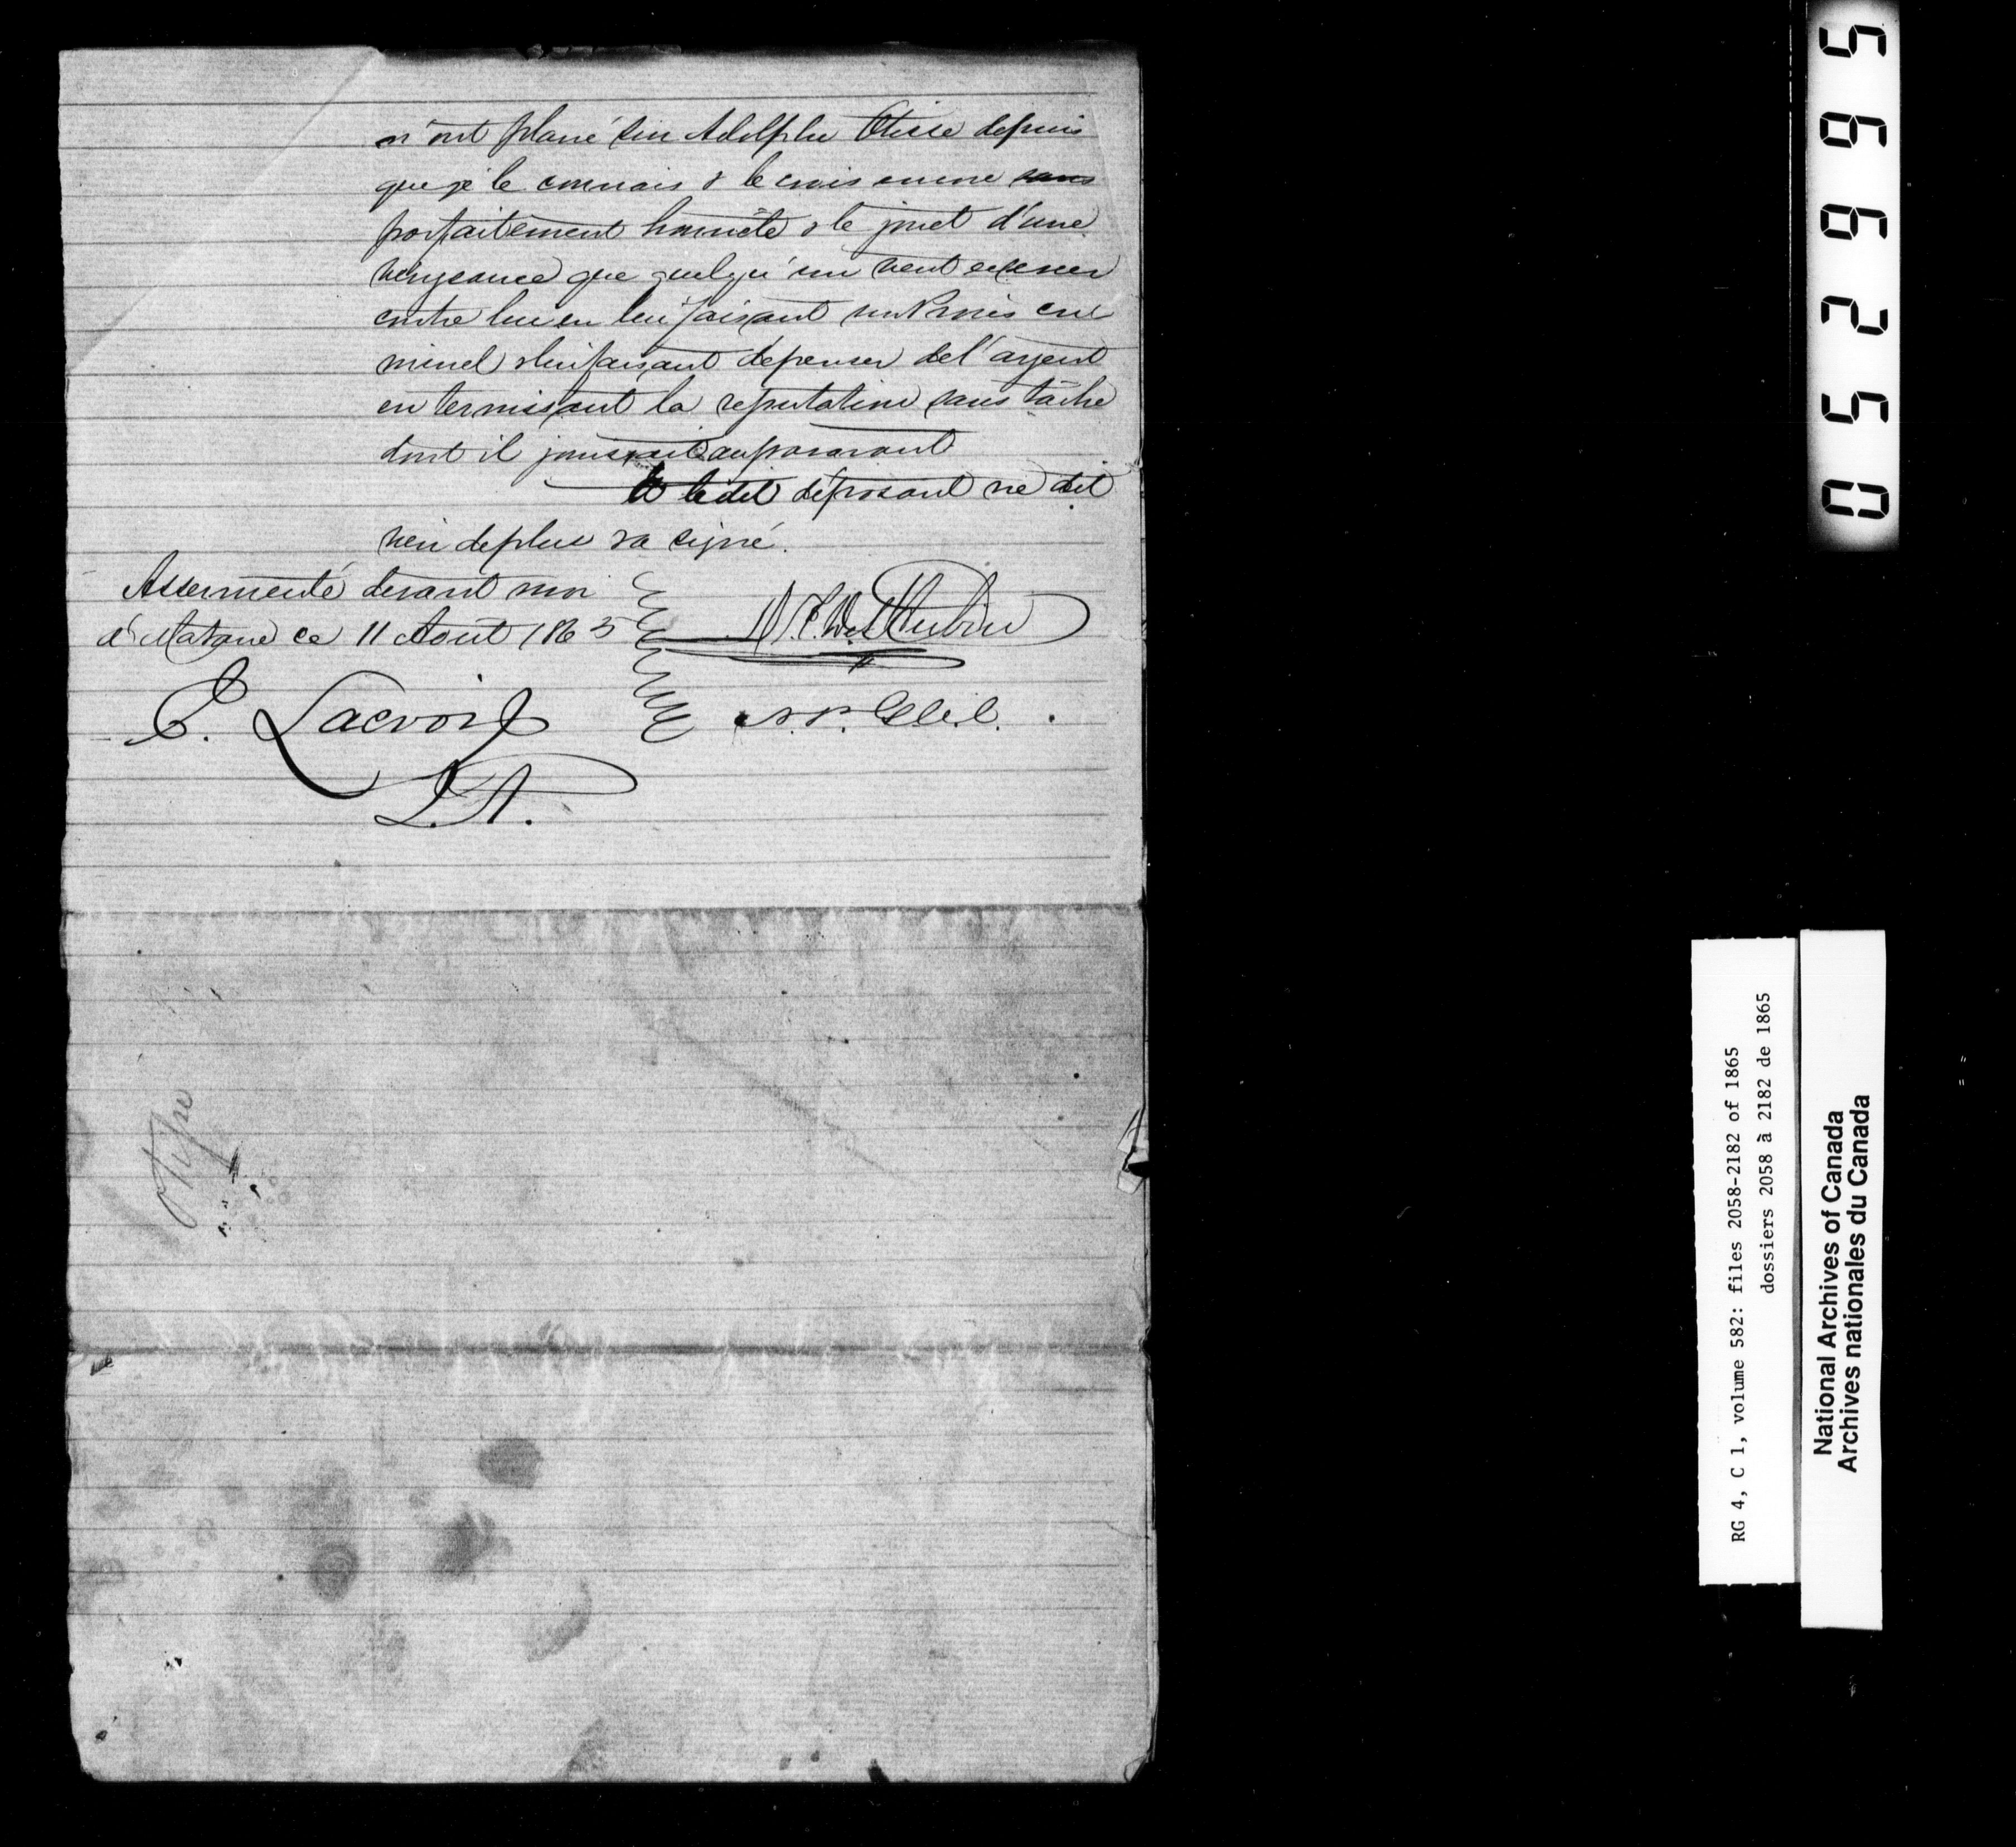 n'ont plané sur Adolphe Otisse depuis
que je le connais & le crois encore sans
parfaitement honnête & le jouet d'une
vengeance que quelqu'un veut exercer
contre lui en lui faisant un Procès cri
minel & lui faisant dépenser de l'argent
en ternissant la reputation sans tâche
dont il jouissait auparavant
& ledit déposant ne dit
rien de plus & a signé.
Assermenté devant moi
à Matane ce 11 Aout 1865
E. Lacroix
052995
RG 4, C 1, volume 582: files 2058-2182 of 1865
dossiers 2058 à 2182 de 1865
National Archives of Canada
Archives nationales du Canada